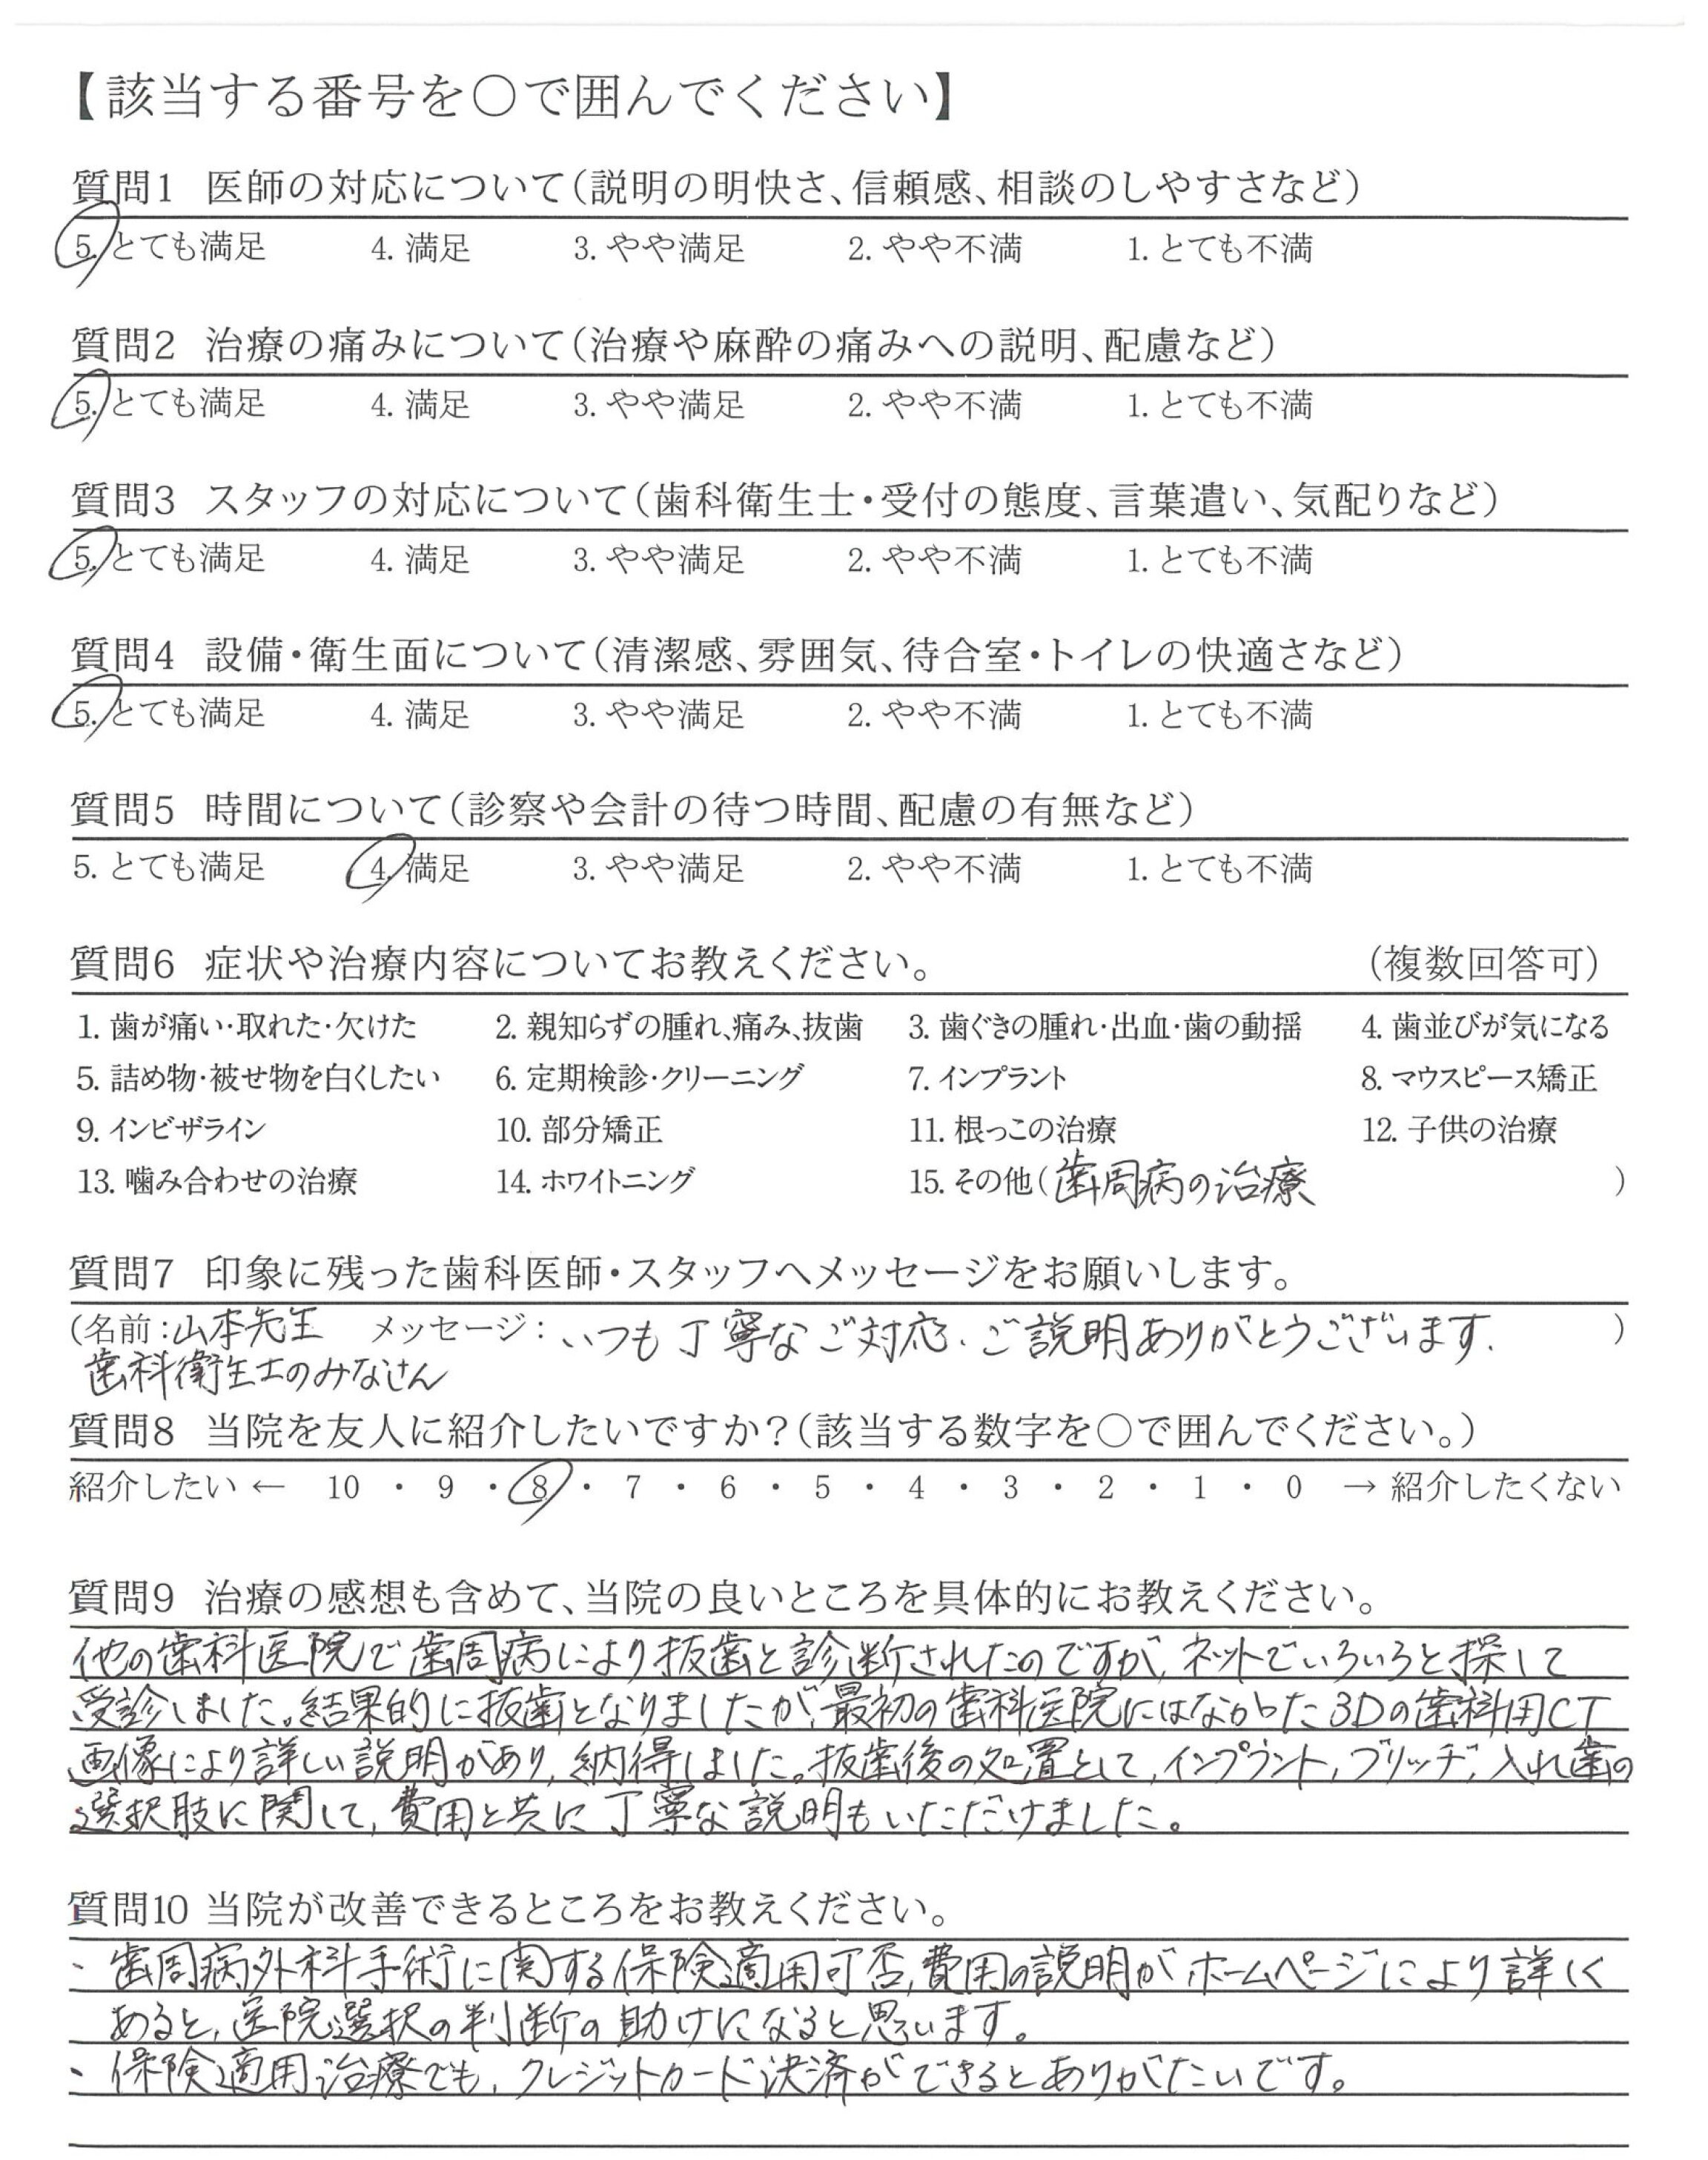 【該当する番号を〇で囲んでください】
質問1 医師の対応について(説明の明快さ、信頼感、相談のしやすさなど)
5. とても満足 4. 満足 3. やや満足 2. やや不満 1. とても不満
質問2 治療の痛みについて(治療や麻酔の痛みへの説明、配慮など)
5. とても満足 4. 満足 3. やや満足 2. やや不満 1. とても不満
質問3 スタッフの対応について(歯科衛生士・受付の態度、言葉遣い、気配りなど)
5. とても満足 4. 満足 3. やや満足 2. やや不満 1. とても不満
質問4 設備・衛生面について(清潔感、雰囲気、待合室・トイレの快適さなど)
5. とても満足 4. 満足 3. やや満足 2. やや不満 1. とても不満
質問5 時間について(診察や会計の待つ時間、配慮の有無など)
5. とても満足 4. 満足 3. やや満足 2. やや不満 1. とても不満
質問6 症状や治療内容についてお教えください。 (複数回答可)
1. 歯が痛い・取れた・欠けた 2. 親知らずの腫れ、痛み、抜歯 3. 歯ぐきの腫れ・出血・歯の動揺 4. 歯並びが気になる
5. 詰め物・被せ物を白くしたい 6. 定期検診・クリーニング 7. インプラント 8. マウスピース矯正
9. インビザライン 10. 部分矯正 11. 根っこの治療 12. 子供の治療
13. 噛み合わせの治療 14. ホワイトニング 15. その他(歯周病の治療 )
質問7 印象に残った歯科医師・スタッフへメッセージをお願いします。
(名前:山本先生 メッセージ:いつも丁寧なご対応、ご説明ありがとうございます。 )
歯科衛生士のみなさん
質問8 当院を友人に紹介したいですか?(該当する数字を〇で囲んでください。)
紹介したい ← 10 ・ 9 ・ 8 ・ 7 ・ 6 ・ 5 ・ 4 ・ 3 ・ 2 ・ 1 ・ 0 → 紹介したくない
質問9 治療の感想も含めて、当院の良いところを具体的にお教えください。
他の歯科医院で歯周病により抜歯と診断されたのですが、ネットでいろいろと探して
受診しました。結果的に抜歯となりましたが、最初の歯科医院にはなかった3Dの歯科用CT
画像により詳しい説明があり、納得しました。抜歯後の処置として、インプラント、ブリッヂ、入れ歯の
選択肢に関して、費用と共に丁寧な説明もいただけました。
質問10 当院が改善できるところをお教えください。
・歯周病外科手術に関する保険適用可否、費用の説明がホームページにより詳しく
あると、医院選択の判断の助けになると思います。
・保険適用治療でも、クレジットカード決済ができるとありがたいです。